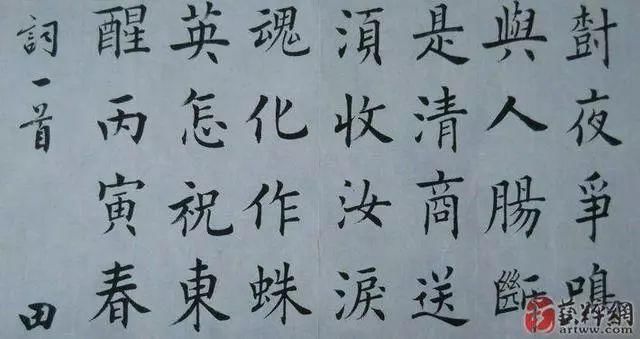 對夜爭鳴
與人腸斷
是清商送
湏收汝淚
魂化作蛛
英怎祝東
醒丙寅春
詞一首 田
藝粹網
artww.com